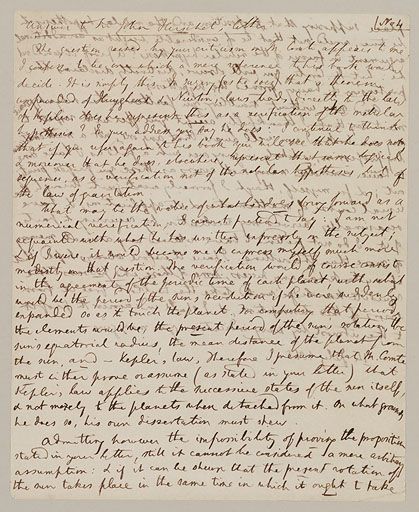 Answer to Sir John Herschel, letter
No 4
The question raised by your criticism
I confess to be one
decide. It is simply this
compounded of Huyghens' & Newton's laws and, directly of the law
of Kepler does represent this as a verification of the nebular
hypothesis? In your address you say he does: I continue to think
that if you refer again to his book you will see that he does not
& moreover that he does elsewhere represent that same logical
sequence as a verification not of the nebular hypothesis but of
the law of gravitation
What may be the worth of what he does bring forward as a
numerical verification, I cannot pretend to say. I am not
acquainted with what he has written expressly on the subject;
& if I were, it would become me to express myself much more
modestly on that question. The verification would of course consist
in the agreement of the periodic time of each planet with what
must be the period of the sun's revolution if he were so
expanded so as to touch the planet. In computing that period
the elements would be, the present period of the sun's rotation, the
sun's equatorial radius, the mean distance of the planet from
the sun, and — Kepler's law. Therefore I presume that M. Comte
must either prove or assume (as stated in your letter) that
Kepler's law applies to the successive states of the sun itself,
& not merely to the planets when detached from it. On what grounds
he does so, his own dissertation must shew.
Admitting however the impossibility of proving the proposition
stated in your letter, still it cannot be considered a mere arbitrary
assumption: & if it can be shewn that the present rotation of
the sun takes place in the same time in which it ought to take